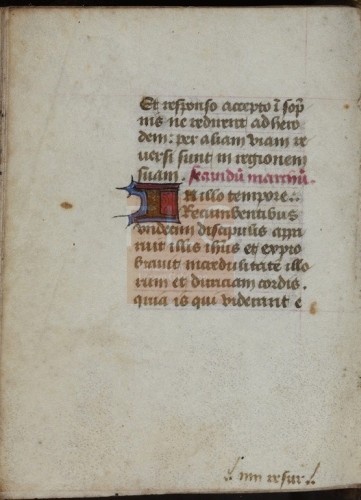 Et responso accepto ī sop̄
nis ne redirent ad hero
dem: per aliam viam re
versi sunt in regionem
suam. Secundū marchū.
IN illo tempore:
Recumbentibus
undecim discipulis appa
ruit illis ihūs et expro
bravit incredulitatē illo
rum et duriciam cordis.
quia is qui viderant e
um resur